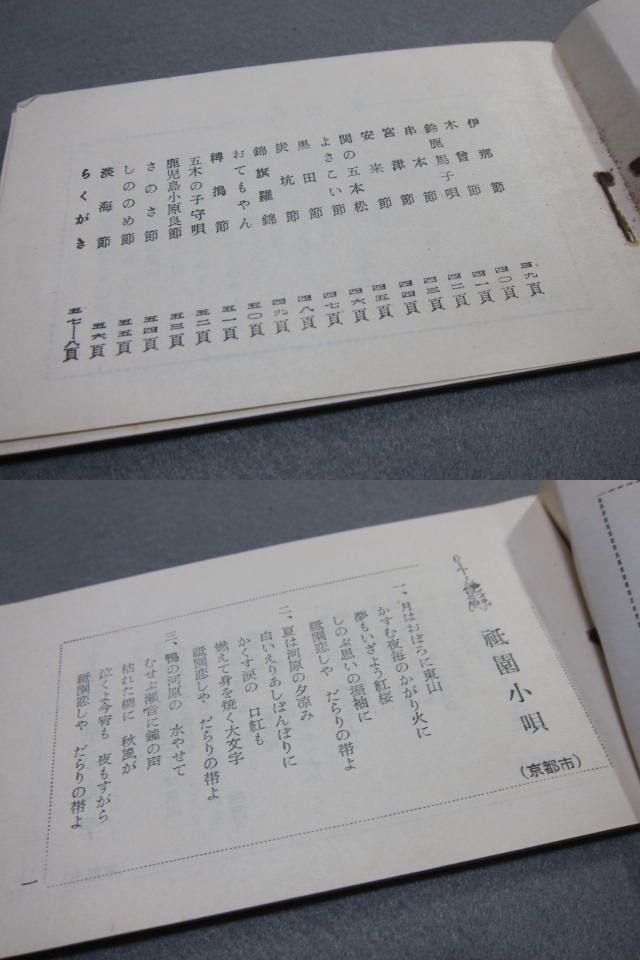 伊那節 三九頁
木曾節 四〇頁
鈴鹿馬子唄 四一頁
串本節 四二頁
宮津節 四三頁
安来節 四四頁
関の五本松 四五頁
よさこい節 四六頁
黒田節 四七頁
炭坑節 四八頁
錦旗羅錦 四九頁
おてもやん 五〇頁
稗搗節 五一頁
五木の子守唄 五二頁
鹿児島小原良節 五三頁
さのさ節 五四頁
しののめ節 五五頁
淡海節 五六頁
らくがき 五七―八頁
祇園小唄
(京都市)
一、月はおぼろに東山
かすむ夜毎のかがり火に
夢もいざよう紅桜
しのぶ思いの振袖に
祗園恋しや だらりの帯よ
二、夏は河原の夕凉み
白いえりあしぼんぼりに
かくす涙の 口紅も
燃えて身を焼く大文字
祗園恋しや だらりの帯よ
三、鴨の河原の 水やせて
むせぶ瀬音に鐘の声
枯れた柳に 秋風が
泣くよ今宵も 夜もすがら
祗園恋しや だらりの帯よ
一